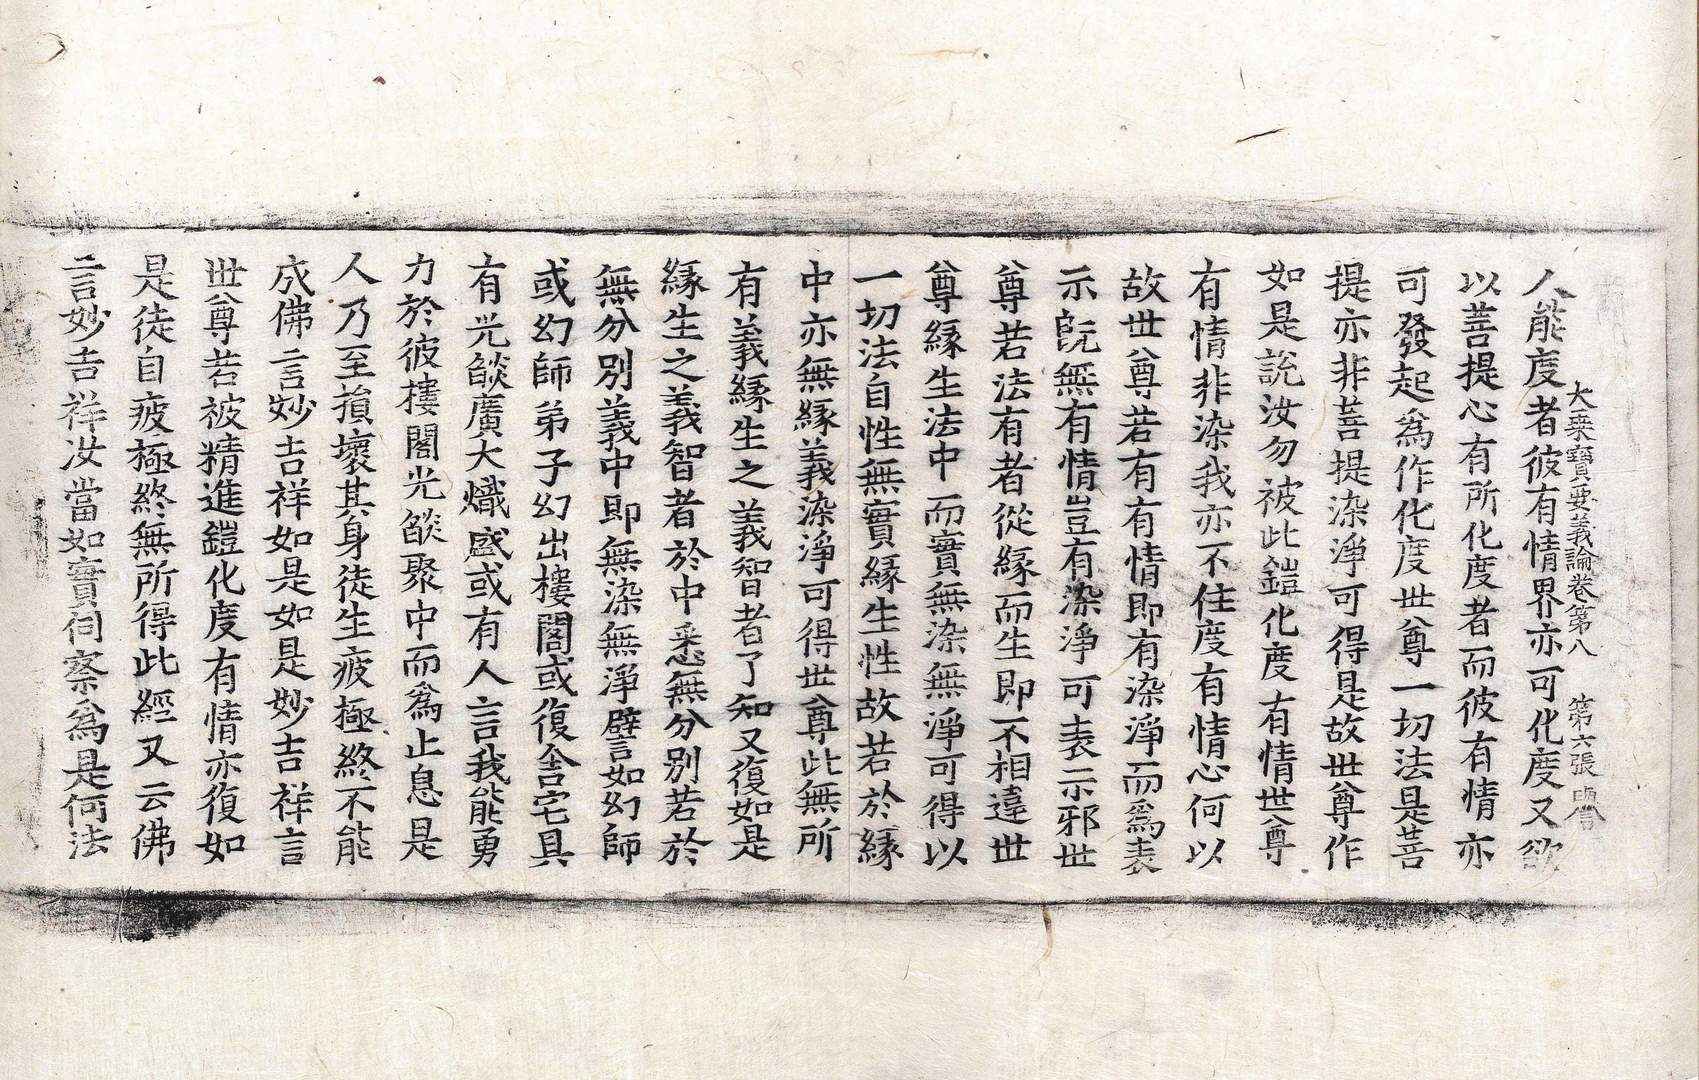 大乗寶要義論卷第八 第六張
人能度者彼有情界亦可化度又欲
以菩提心有所化度者而彼有情亦
可發起爲作化度世尊一切法是菩
提亦非菩提染淨可得是故世尊作
如是說汝勿被此鎧化度有情世尊
有情非染我亦不住度有情心何以
故世尊若有有情即有染淨而爲表
示旣無有情豈有染淨可表示邪世
尊若法有者從緣而生即不相違世
尊緣生法中而實無染無淨可得以
一切法自性無實緣生性故若於緣
中亦無緣義染淨可得世尊此無所
有義緣生之義智者了知又復如是
緣生之義智者於中悉無分別若於
無分別義中即無染無淨譬如幻師
或幻師弟子幻出樓閣或復舍宅具
有光燄廣大熾盛或有人言我能勇
力於彼樓閣光燄聚中而爲止息是
人乃至損壞其身徒生疲極終不能
成佛言妙吉祥如是如是妙吉祥言
世尊若被精進鎧化度有情亦復如
是徒自疲極終無所得此經又云佛
言妙吉祥汝當如實伺察爲是何法